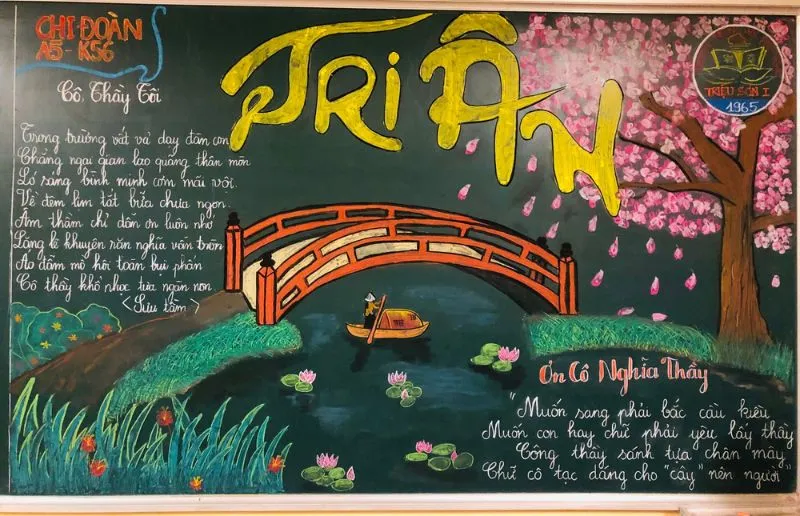 CHI ĐOÀN
A5 - K56
TRI ÂN
TRIỆU SƠN I
1965
Cô, Thầy Tôi
Trong trường vất vả dạy đàn con
Chẳng ngại gian lao quãng thân mòn
Ló sáng bình minh cơm mãi vội
Về đêm lim tắt bữa chưa ngon
Âm thầm chỉ dẫn ơn luôn nhớ
Lặng lẽ khuyên răn nghĩa vẫn tròn
Áo đẫm mồ hôi toàn bụi phấn
Cô thầy khổ nhọc tựa ngàn non
<Sưu tầm>
Ơn Cô Nghĩa Thầy
"Muốn sang phải bắc cầu kiều
Muốn con hay chữ phải yêu lấy thầy
Công thầy sánh tựa chân mây
Chữ cô tạc dáng cho "cây" nên người"